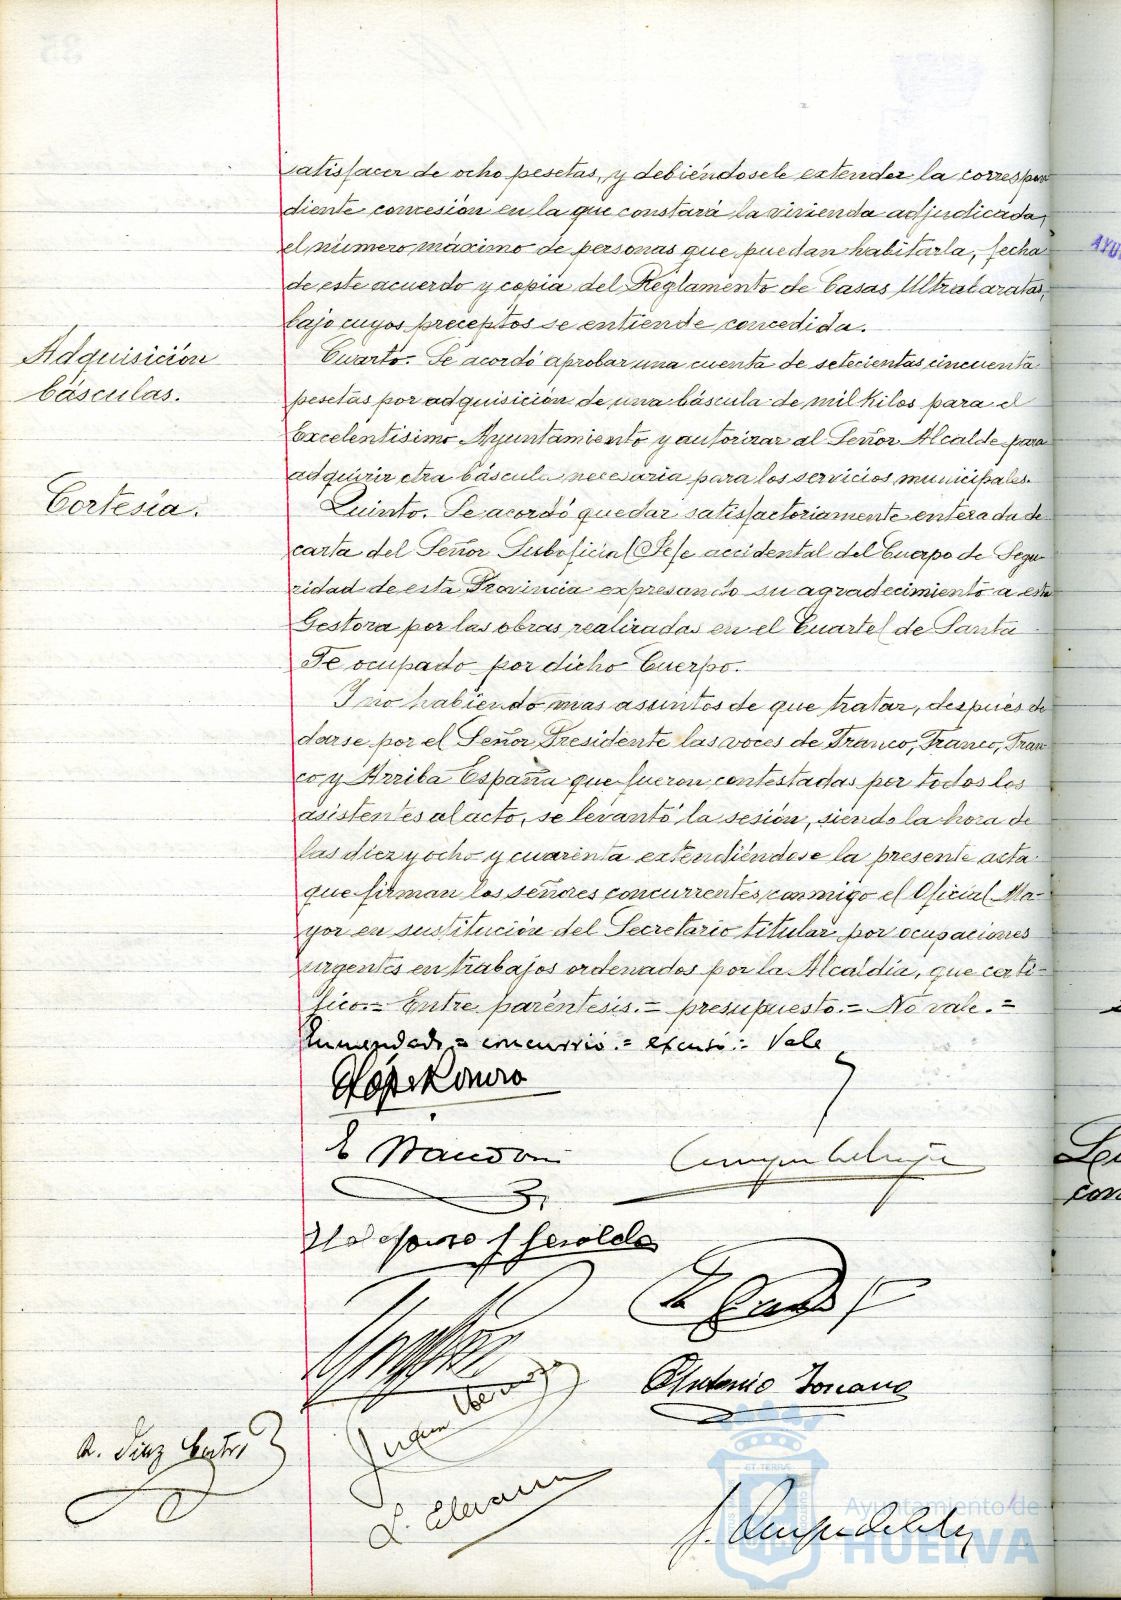 satisfacer de ocho pesetas, y debiéndosele extender la correspon
diente concesión en la que constará la vivienda adjudicada,
el número máximo de personas que puedan habitarla, fecha
de este acuerdo y copia del Reglamento de Casas Ultrabaratas,
bajo cuyos preceptos se entiende concedida.
Adquisición
básculas.
Cuarto. Se acordó aprobar una cuenta de setecientas cincuenta
pesetas por adquisición de una báscula de mil kilos para el
Excelentísimo Ayuntamiento y autorizar al Señor Alcalde para
adquirir otra báscula necesaria para los servicios municipales.
Cortesía.
Quinto. Se acordó quedar satisfactoriamente enterada de
carta del Señor Suboficial Jefe accidental del Cuerpo de Segu-
ridad de esta Provincia expresando su agradecimiento a esta
Gestora por las obras realizadas en el Cuartel de Santa
Fe ocupado por dicho Cuerpo.
Y no habiendo mas asuntos de que tratar, después de
darse por el Señor Presidente las voces de Franco, Franco, Fran-
co y Arriba España que fueron contestadas por todos los
asistentes al acto, se levantó la sesión, siendo la hora de
las diez y ocho y cuarenta extendiéndose la presente acta
que firman los señores concurrentes conmigo el Oficial Ma-
yor en sustitución del Secretario titular por ocupaciones
urgentes en trabajos ordenados por la Alcaldía, que certi-
fico.= Entre paréntesis.= presupuesto.= No vale.=
Enmendado = concurrió.= excusó.= Vale
E Mandoni
Antonio Toscano
R. Diaz
Ayuntamiento de
HUELVA